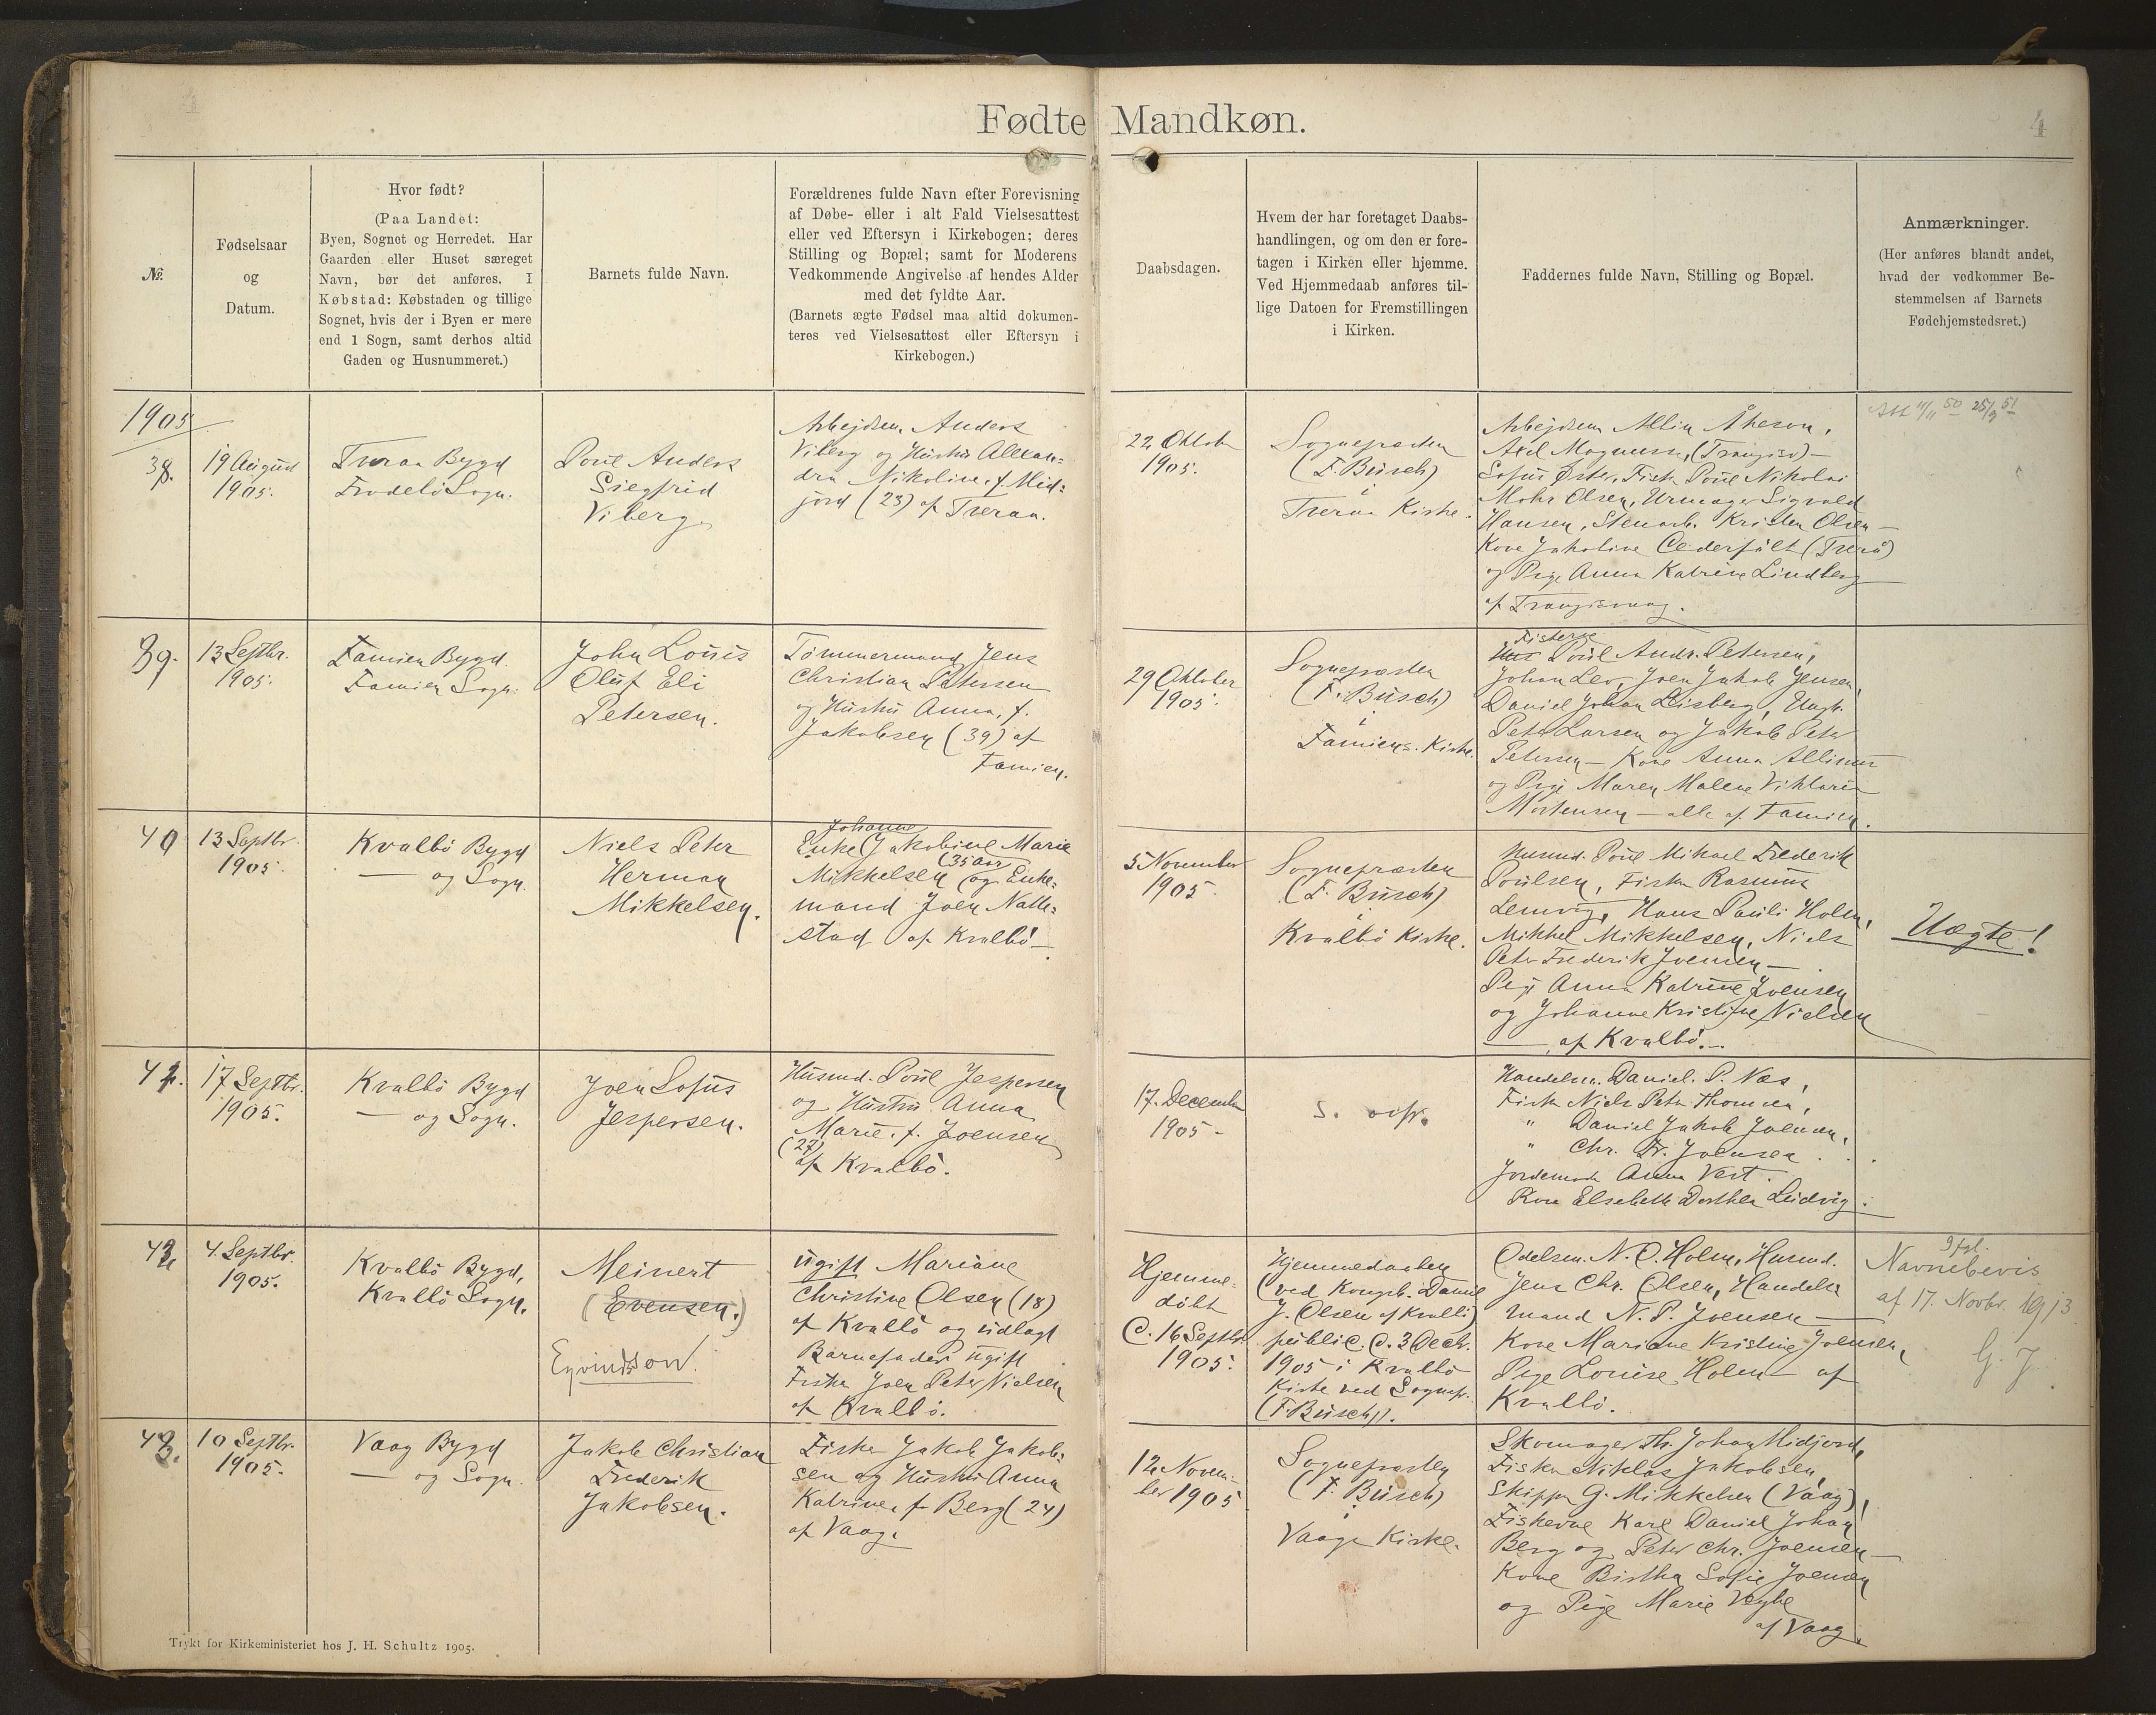 Fødte Mandkøn.
4
№.
Fødselsaar
og
Datum.
Hvor født?
(Paa Landet:
Byen, Sognet og Herredet. Har
Gaarden eller Huset særeget
Navn, bør det anføres. I
Købstad: Købstaden og tillige
Sognet, hvis der i Byen er mere
end 1 Sogn, samt derhos altid
Gaden og Husnummeret.)
Barnets fulde Navn.
Forældrenes fulde Navn efter Forevisning
af Døbe- eller i alt Fald Vielsesattest
eller ved Eftersyn i Kirkebogen; deres
Stilling og Bopæl; samt for Moderens
Vedkommende Angivelse af hendes Alder
med det fyldte Aar.
(Barnets ægte Fødsel maa altid dokumen-
teres ved Vielsesattest eller Eftersyn i
Kirkebogen.)
Daabsdagen.
Hvem der har foretaget Daabs-
handlingen, og om den er fore-
tagen i Kirken eller hjemme.
Ved Hjemmedaab anføres til-
lige Datoen for Fremstillingen
i Kirken.
Faddernes fulde Navn, Stilling og Bopæl.
Anmærkninger.
(Her anføres blandt andet,
hvad der vedkommer Be-
stemmelsen af Barnets
Fødehjemstedsret.)
1905
38.
19 August
1905.
Tveraa Bygd
Frodebø Sogn.
Poul Anders
Siegfrid
Viberg
Arbejdsm. Anders
Viberg og Hustru Alexan=
dra Nikoline, f. Mid=
jord (23) af Tveraa.
22 Oktob
1905.
Sognepræsten
(F. Busch)
i
Tveraa Kirke.
Arbejdsm Åkeson,
Axel Magnussen, (Trangisv)—
Sofus Øster, Fisk. Poul Nikolai
Mohr Olsen, Urmager Sigvald
Hansen, Stenarb. Kristen Olsen—
Kone Jakobine Cederfält (Tverå)
og Pige Anna Katrine Lindberg
af Trangisvaag.
11/11 50 25/9 51
39.
13 Septbr.
1905.
Famien Bygd.
Famien Sogn.
John Louis
Oluf Eli
Petersen.
Tømmermand Jens
Christian Petersen
og Hustru Anna, f.
Jakobsen (39) af
Famien.
29 Oktober
1905.
Sognepræsten
(F. Busch)
i
Famiens Kirke.
Fiskerne
Poul Andr. Petersen,
Johan Lev, Joen Jakob Jensen,
Daniel Johan Lisberg, Ungk.
Peter Larsen og Jakob Peter
Petersen — Kone Anna
og Pige Maren Malene Viktoria
Mortensen — alle af Famien.
40
13 Septbr.
1905.
Kvalbø Bygd
— og Sogn.
Niels Peter
Herman
Mikkelsen.
Johanne
Enke Jakobine Marie
(35 aar)
Mikkelsen og Enke=
mand Joen Natte=
stad af Kvalbø—
5 November
1905.
Sognepræsten
(F. Busch)
i
Kvalbø Kirke.
Husmd. Poul Mikael Frederik
Poulsen, Fisker Rasmus
Lemvig, Hans Pauli Holm,
Mikkel Mikkelsen, Niels
Peter Frederik Joensen—
Pige Anna Katrine Joensen
og Johanne Kristine Nielsen
— af Kvalbø.—
Uægte!
41.
17 Septbr.
1905.
Kvalbø Bygd
— og Sogn.
Joen Sofus
Jespersen.
Husmd. Poul Jespersen
og Hustru Anna
Marie, f. Joensen
(27)
af Kvalbø.
17. December
1905 -
Handelsm. Daniel P. Næs,
Fisker Niels Peter Thomsen,
" Daniel Jakob Joensen,
" Chr. Fr. Joensen
Jordemoder Anna Vest.
Kone Elsebeth Dorthea Ludvig.
42
4. Septbr.
1905.
Kvalbø Bygd,
Kvalbø Sogn.
Meinert
(Evensen.)
Eyvindsson.
ugift Mariane
Christine Olsen (18)
af Kvalbø og udlagt
Barnefader ugift
Fisker Joen Peter Nielsen
af Kvalbø.
Hjemme-
døbt
d. 16 Septbr.
1905.
Hjemmedaaben
(ved Kongsb. Daniel
J. Olsen af Kvalbø)
public. d. 3 Decbr.
1905 i Kvalbø
Kirke ved Sognepr.
(F. Busch).
Odelsm. N. O. Holm, Husmd.
Jens Chr. Olsen, Handels
mand N. P. Joensen —
Kone Mariane Kristine Joensen,
Pige Louise Holm — af
Kvalbø.
Navnebevis
af 17. Novbr. 1913
G. J.
43.
10 Septbr.
1905.
Vaag Bygd
— og Sogn.
Jakob Christian
Frederik
Jakobsen.
Fisker Jakob Jakob=
sen og Hustru Anna
Katrine, f. Berg (24)
af Vaag.
12 Novem-
ber 1905
Sognepræsten
(F. Busch)
i
Vaags Kirke.
Skomager Th. Johan Midjord,
Fisker Niklas Jakobsen,
Skipper G. Mikkelsen (Vaag),
Fiskerne Karl Daniel Johan
Berg og Peter Chr. Joensen—
Kone Birtha Sofie Joensen
og Pige Marie Veyhe
af Vaag.
Trykt for Kirkeministeriet hos J. H. Schultz 1905.